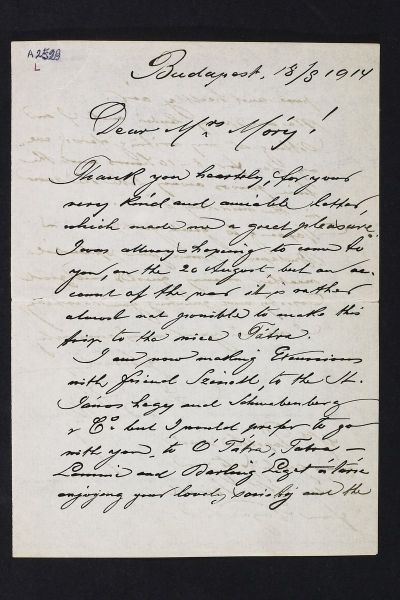 A 2529
L
Budapest, 18/8 1914
Dear Mrs Móry!
Thank you heartily, for your
very kind and amiable letter,
which made me a great pleasure.
I was allways hoping to come to
you, on the 20 August, but on ac-
count of the war it is rather
almost not possible to make this
trip to the nice Tátra.
I am now making Excursions
with friend Szénett, to the St.
János hegy and Schwabenberg
& Co but I would prefer to go
with you, to Ó Tátra, Tatra-
Lomnic and Barlang Liget
enjoying your lovely society and the